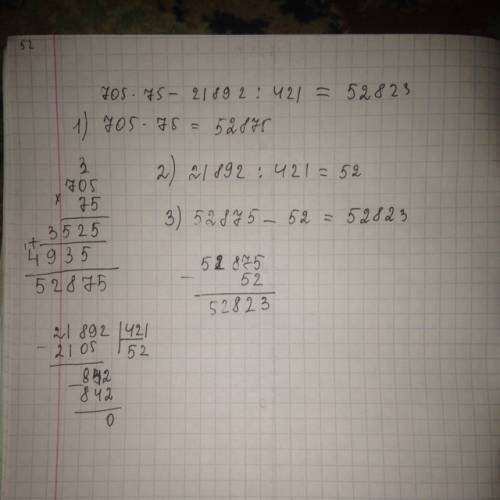 52
705 · 75 - 21892 : 421 = 52823
1) 705 · 75 = 52875
3
705
× 75
3525
+
4935
52875
2) 21892 : 421 = 52
3) 52875 - 52 = 52823
52875
- 52
52823
21892 | 421
- 2105 | 52
- 842
842
0